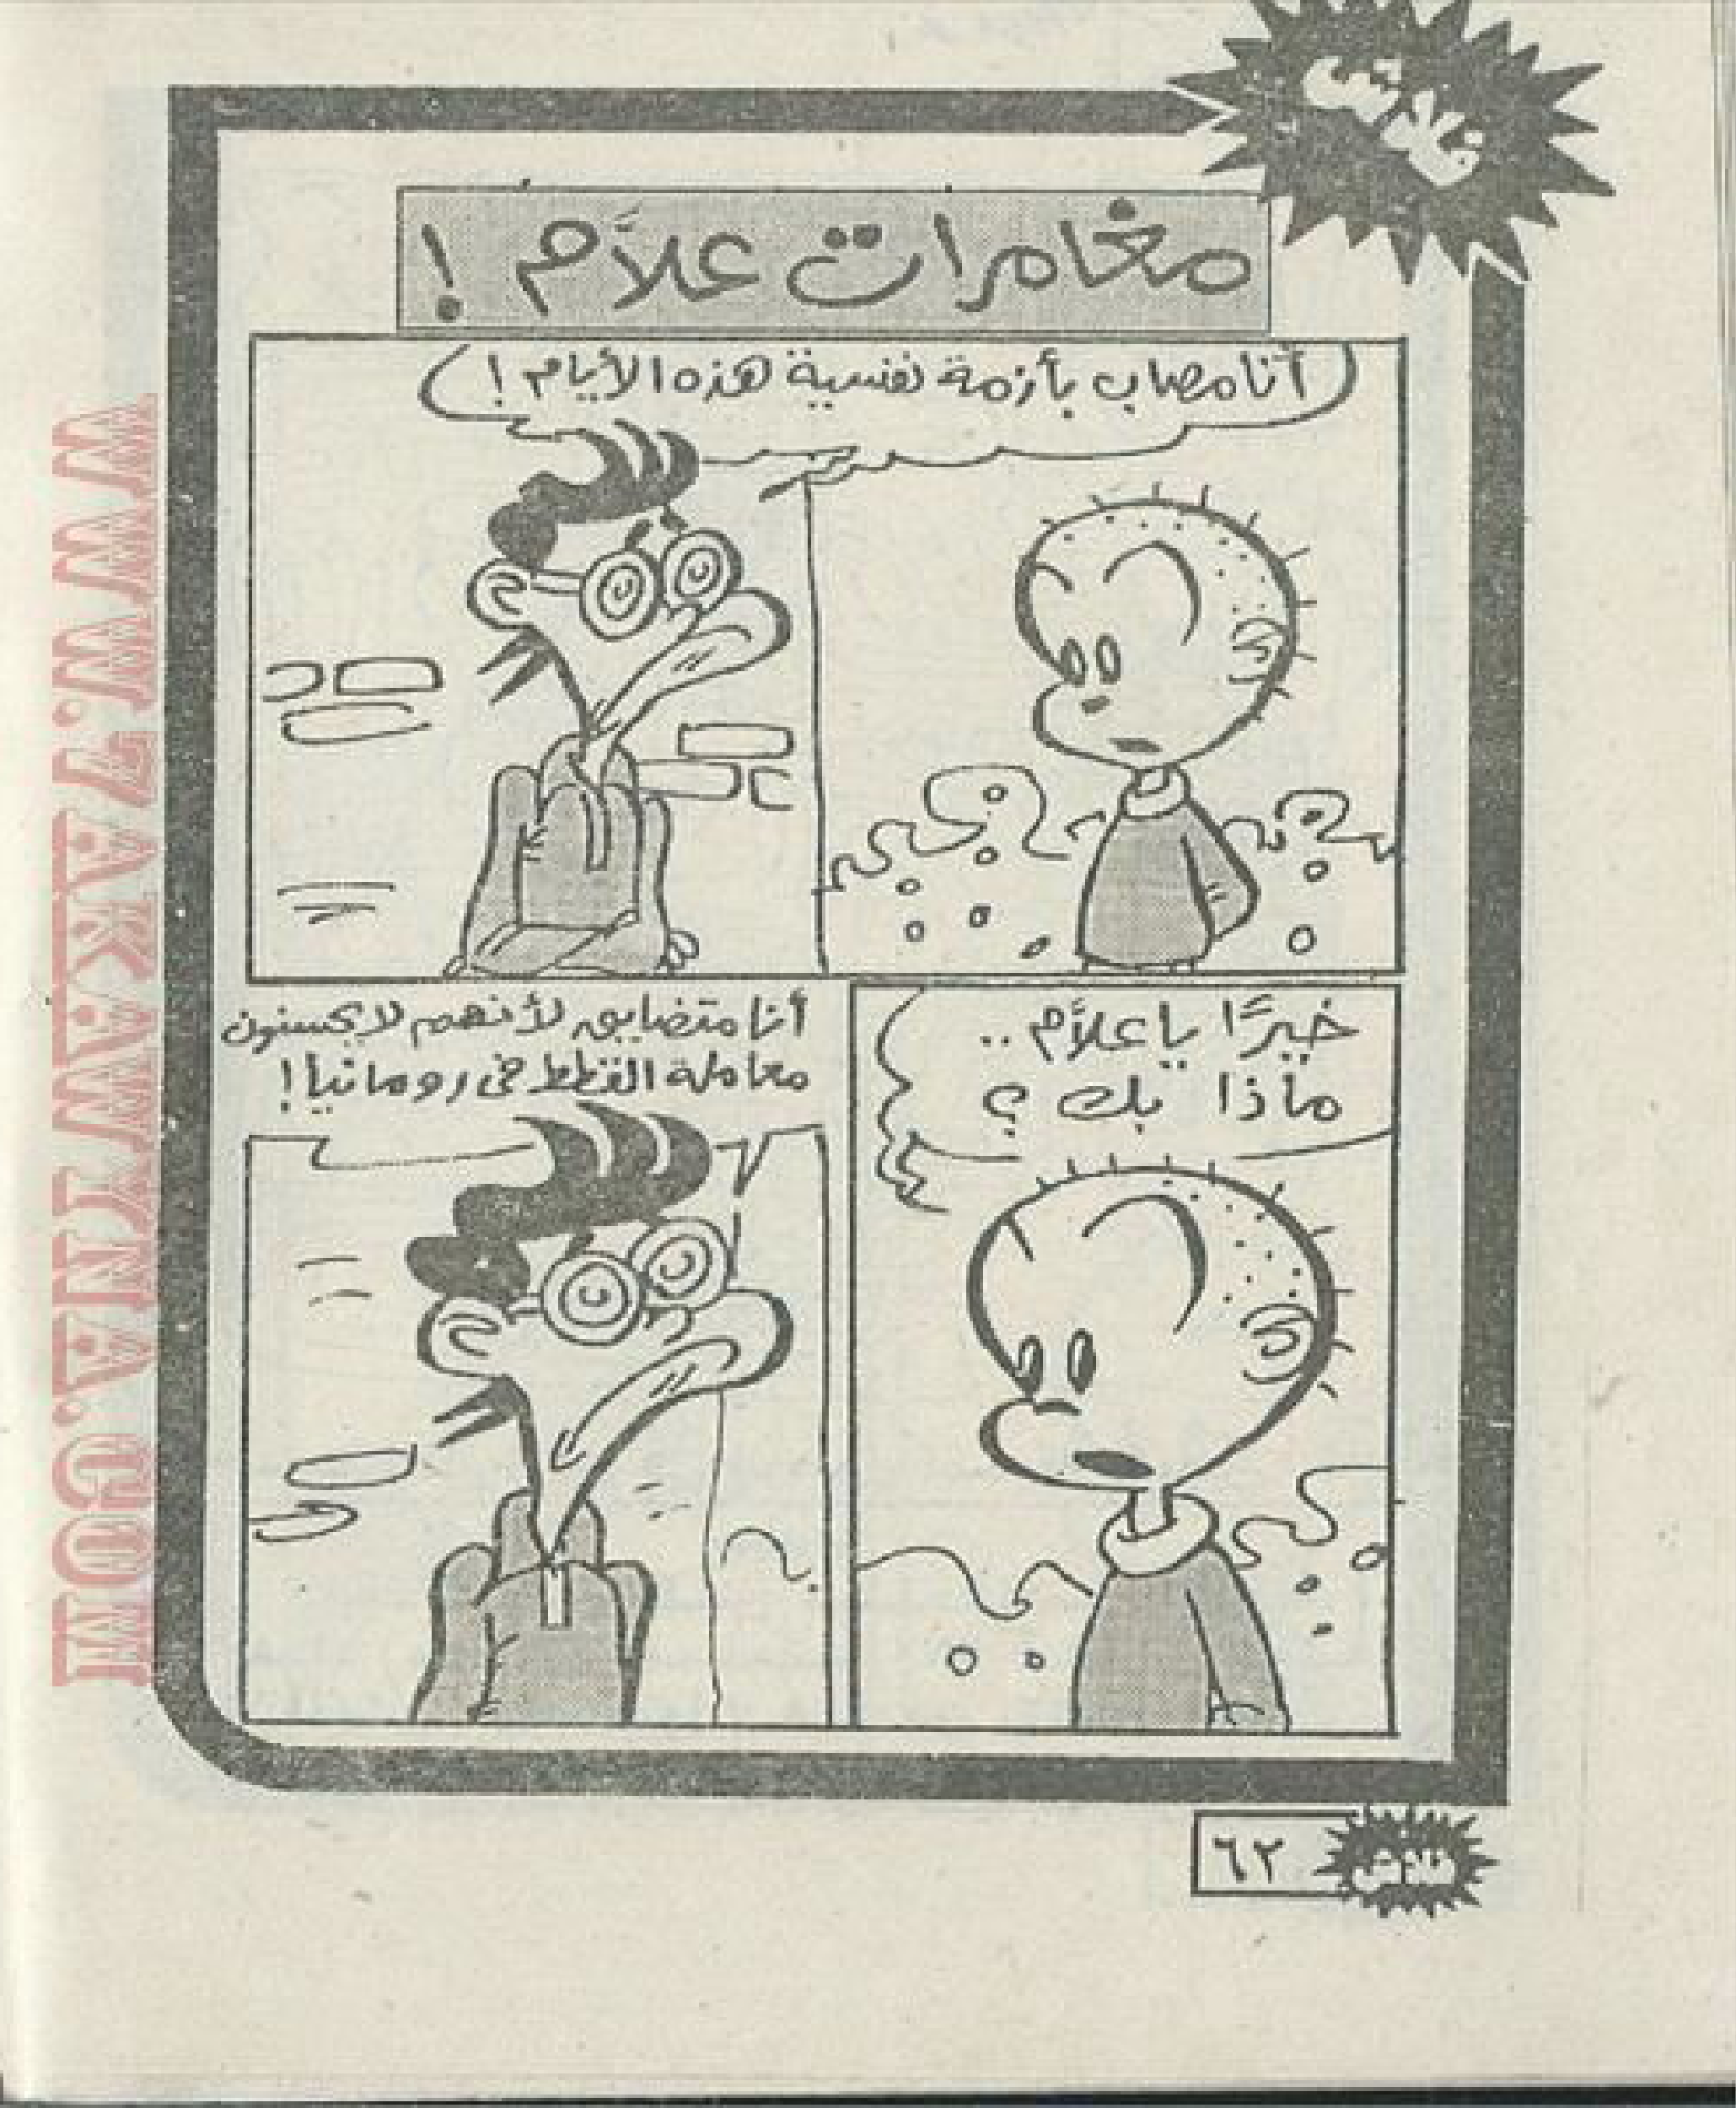 فلاش
مغامرات علاَّم !
أنا مصاب بأزمة نفسية هذه الأيام !
خيرًا يا علاَّم ..
ماذا بك ؟
أنا متضايق لأنهم لا يحسنون
معاملة القطط فى رومانيا !
فلاش
٦٢
WWW.7AKAWITNA.COM